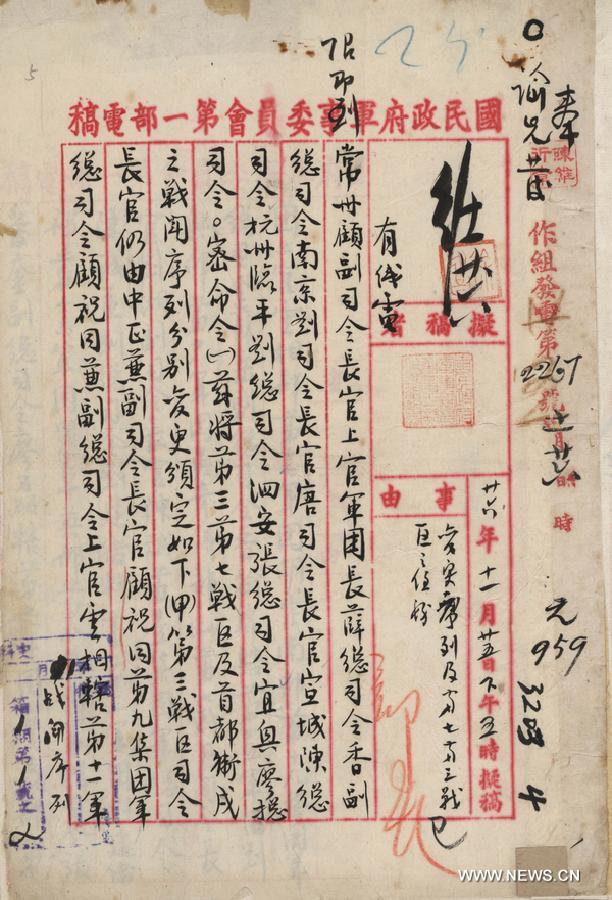 國民政府軍事委員會第一部電稿
作組發電第2267號
時
元
959
3283
4
擬稿者
事由
廿六年十一月廿五日下午五時擬稿
變更序列及第七第三戰
区之任務
有戌電
限即到
常州顧副司令長官上官軍團長薛總司令香副
總司令南京劉司令長官唐司令長官宣城陳總
司令杭州臨平劉總司令泗安張總司令宜興廖總
司令。密命令㈠茲將第三第七戰区及首都衛戍
之戰鬥序列分別變更頒定如下(甲)第三戰区司令
長官仍由中正兼副司令長官顧祝同第九集团軍
總司令顧祝同兼副總司令上官雲相轄第十一軍
战闘序列
5
WWW.NEWS.CN